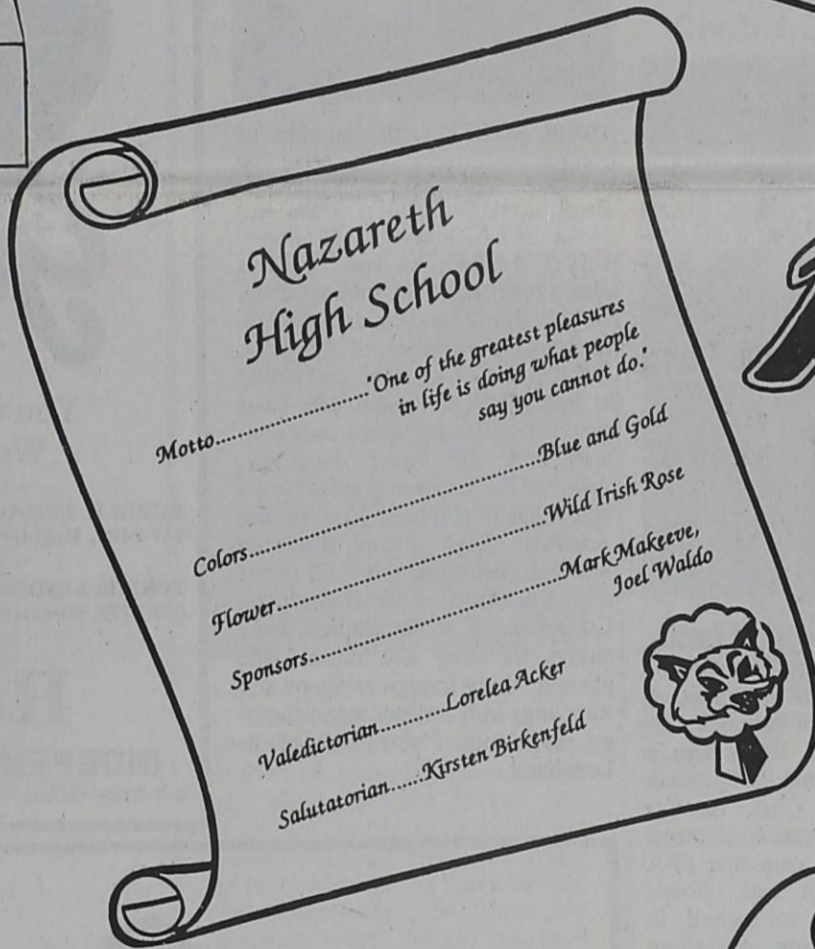 Nazareth
High School
Motto..........................."One of the greatest pleasures
in life is doing what people
say you cannot do."
Colors.....................................................Blue and Gold
Flower.................................................Wild Irish Rose
Sponsors..............................................Mark Makeeve,
Joel Waldo
Valedictorian............Lorelea Acker
Salutatorian......Kirsten Birkenfeld